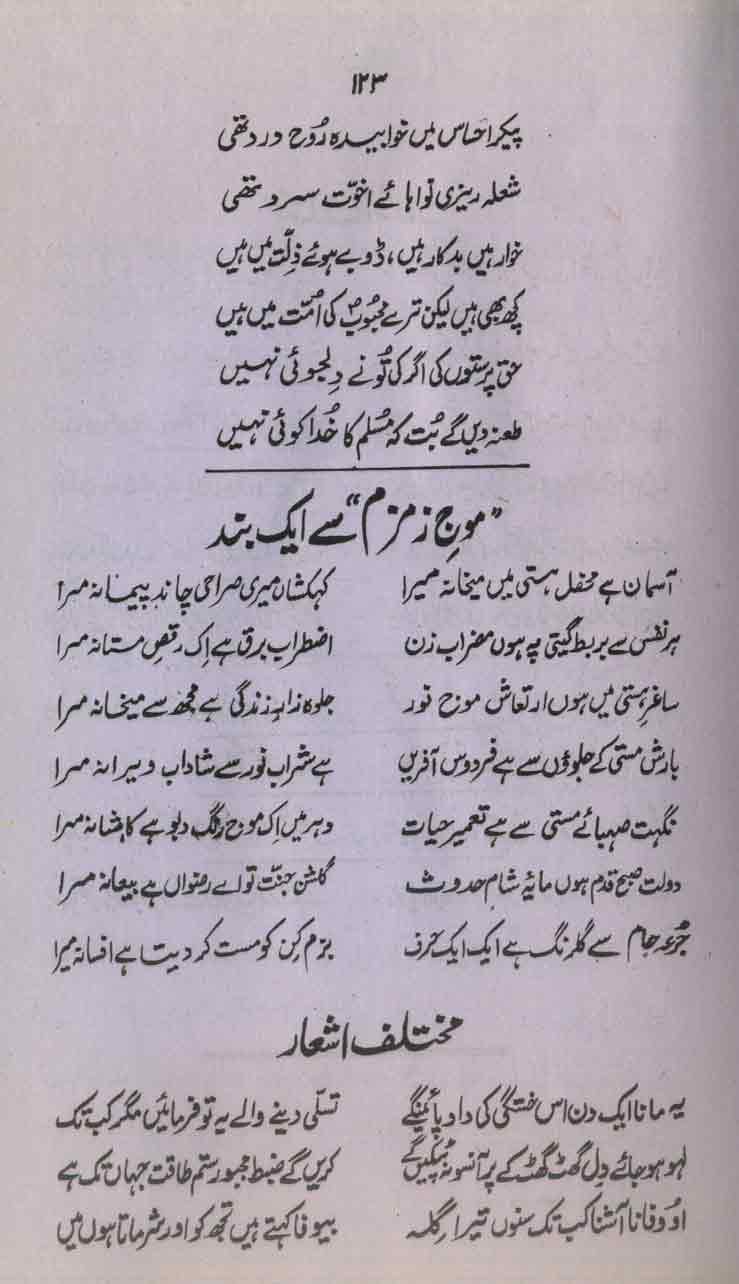 ۱۲۳
پیکر احساس میں خوابیدہ رُوح درد تھی
شعلہ ریزی نوا ہائے اخوّت سرد تھی
خوار ہیں بدکار ہیں، ڈوبے ہوئے ذلّت میں ہیں
کچھ بھی ہیں لیکن ترے محبُوبؐ کی اُمّت میں ہیں
حق پرستوں کی اگر کی تُو نے دِلجوئی نہیں
طعنہ دیں گے بُت کہ مُسلم کا خُدا کوئی نہیں
”موجِ زمزم“ سے ایک بند
آسمان ہے محفل ہستی میں میخانہ میرا کہکشاں میری صراحی چاند پیمانہ مرا
ہر نفس سے بربط گیتی پہ ہوں مضراب زن اضطراب برق ہے اِک رقصِ مستانہ مرا
ساغرِ ہستی میں ہوں ارتعاش موزح نور جلوہ زادِ زندگی ہے مجھ سے میخانہ مرا
بارش مستی کے جلوؤں سے ہے فردوس آفریں ہے شراب نور سے شاداب ویرانہ مرا
نگہت صہبائے مستی سے ہے تعمیر حیات دہر میں اِک موج رنگ و بو ہے کاشانہ مرا
دولت صبح قدم ہوں مایۂ شام حدوث گلشن جنّت تو اے رضواں ہے بیعانہ مرا
جُرعہ جام سے گلرنگ ہے ایک ایک حَرف بزم کِن کو مست کر دیتا ہے افسانہ میرا
مختلف اشعار
یہ مانا ایک دن اس خستگی کی داد پائینگے تسلّی دینے والے یہ تو فرمائیں مگر کب تک
لہو ہو جائے دِل گھٹ گھٹ کے پر آنسو نہ ٹپکیں گے کریں گے ضبط مجبور ستم طاقت جہاں تک ہے
او وفا نا آشنا کب تک سنوں تیرا گِلہ بیوفا کہتے ہیں تجھ کو اور شرماتا ہوں میں